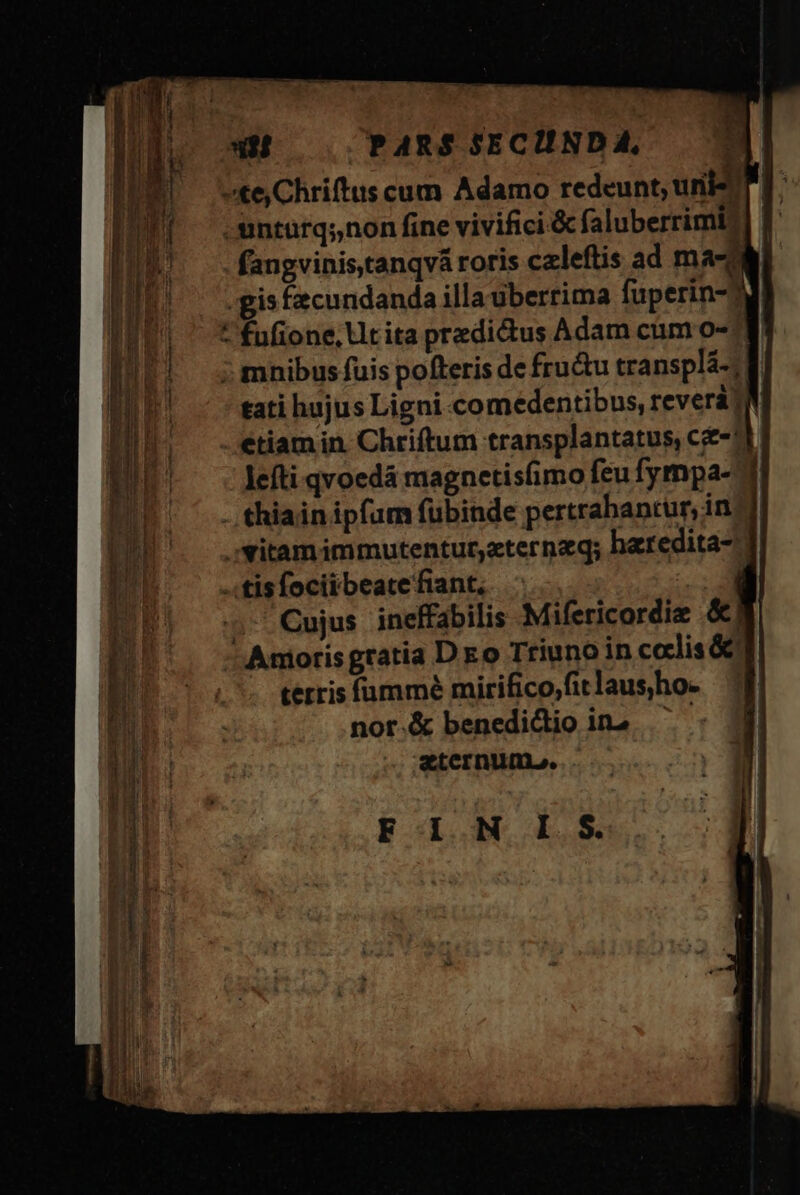 PARS SECUNDA.
te, Chriſtus cum Adamo redeunt, uni-
unturq;, non ſine vivifici & ſaluberrimi
ſangvinis, tanqvã roris cæleſtis ad ma-
gis fæcundanda illa uberrima ſuperin-
fuſione, Ut ita prædictus Adam cum o-
mnibus ſuis poſteris de fructu transplã-
tati hujus Ligni comedentibus, reverà
etiam in Chriſtum transplantatus, cæ-
leſti qvoedã magnetisſimo ſeu ſympa-
thia in ipſum ſubinde pertrahantur, in
vitam immutentur, æternæq; hæredita-
tis ſocii beate fiant,
Cujus ineffabilis Miſericordiæ &
Amoris gratia DEO Triuno in cœlis &
terris ſummè mirifico, ſit laus, ho-
nor & benedictio in
æternum.
FINIS.